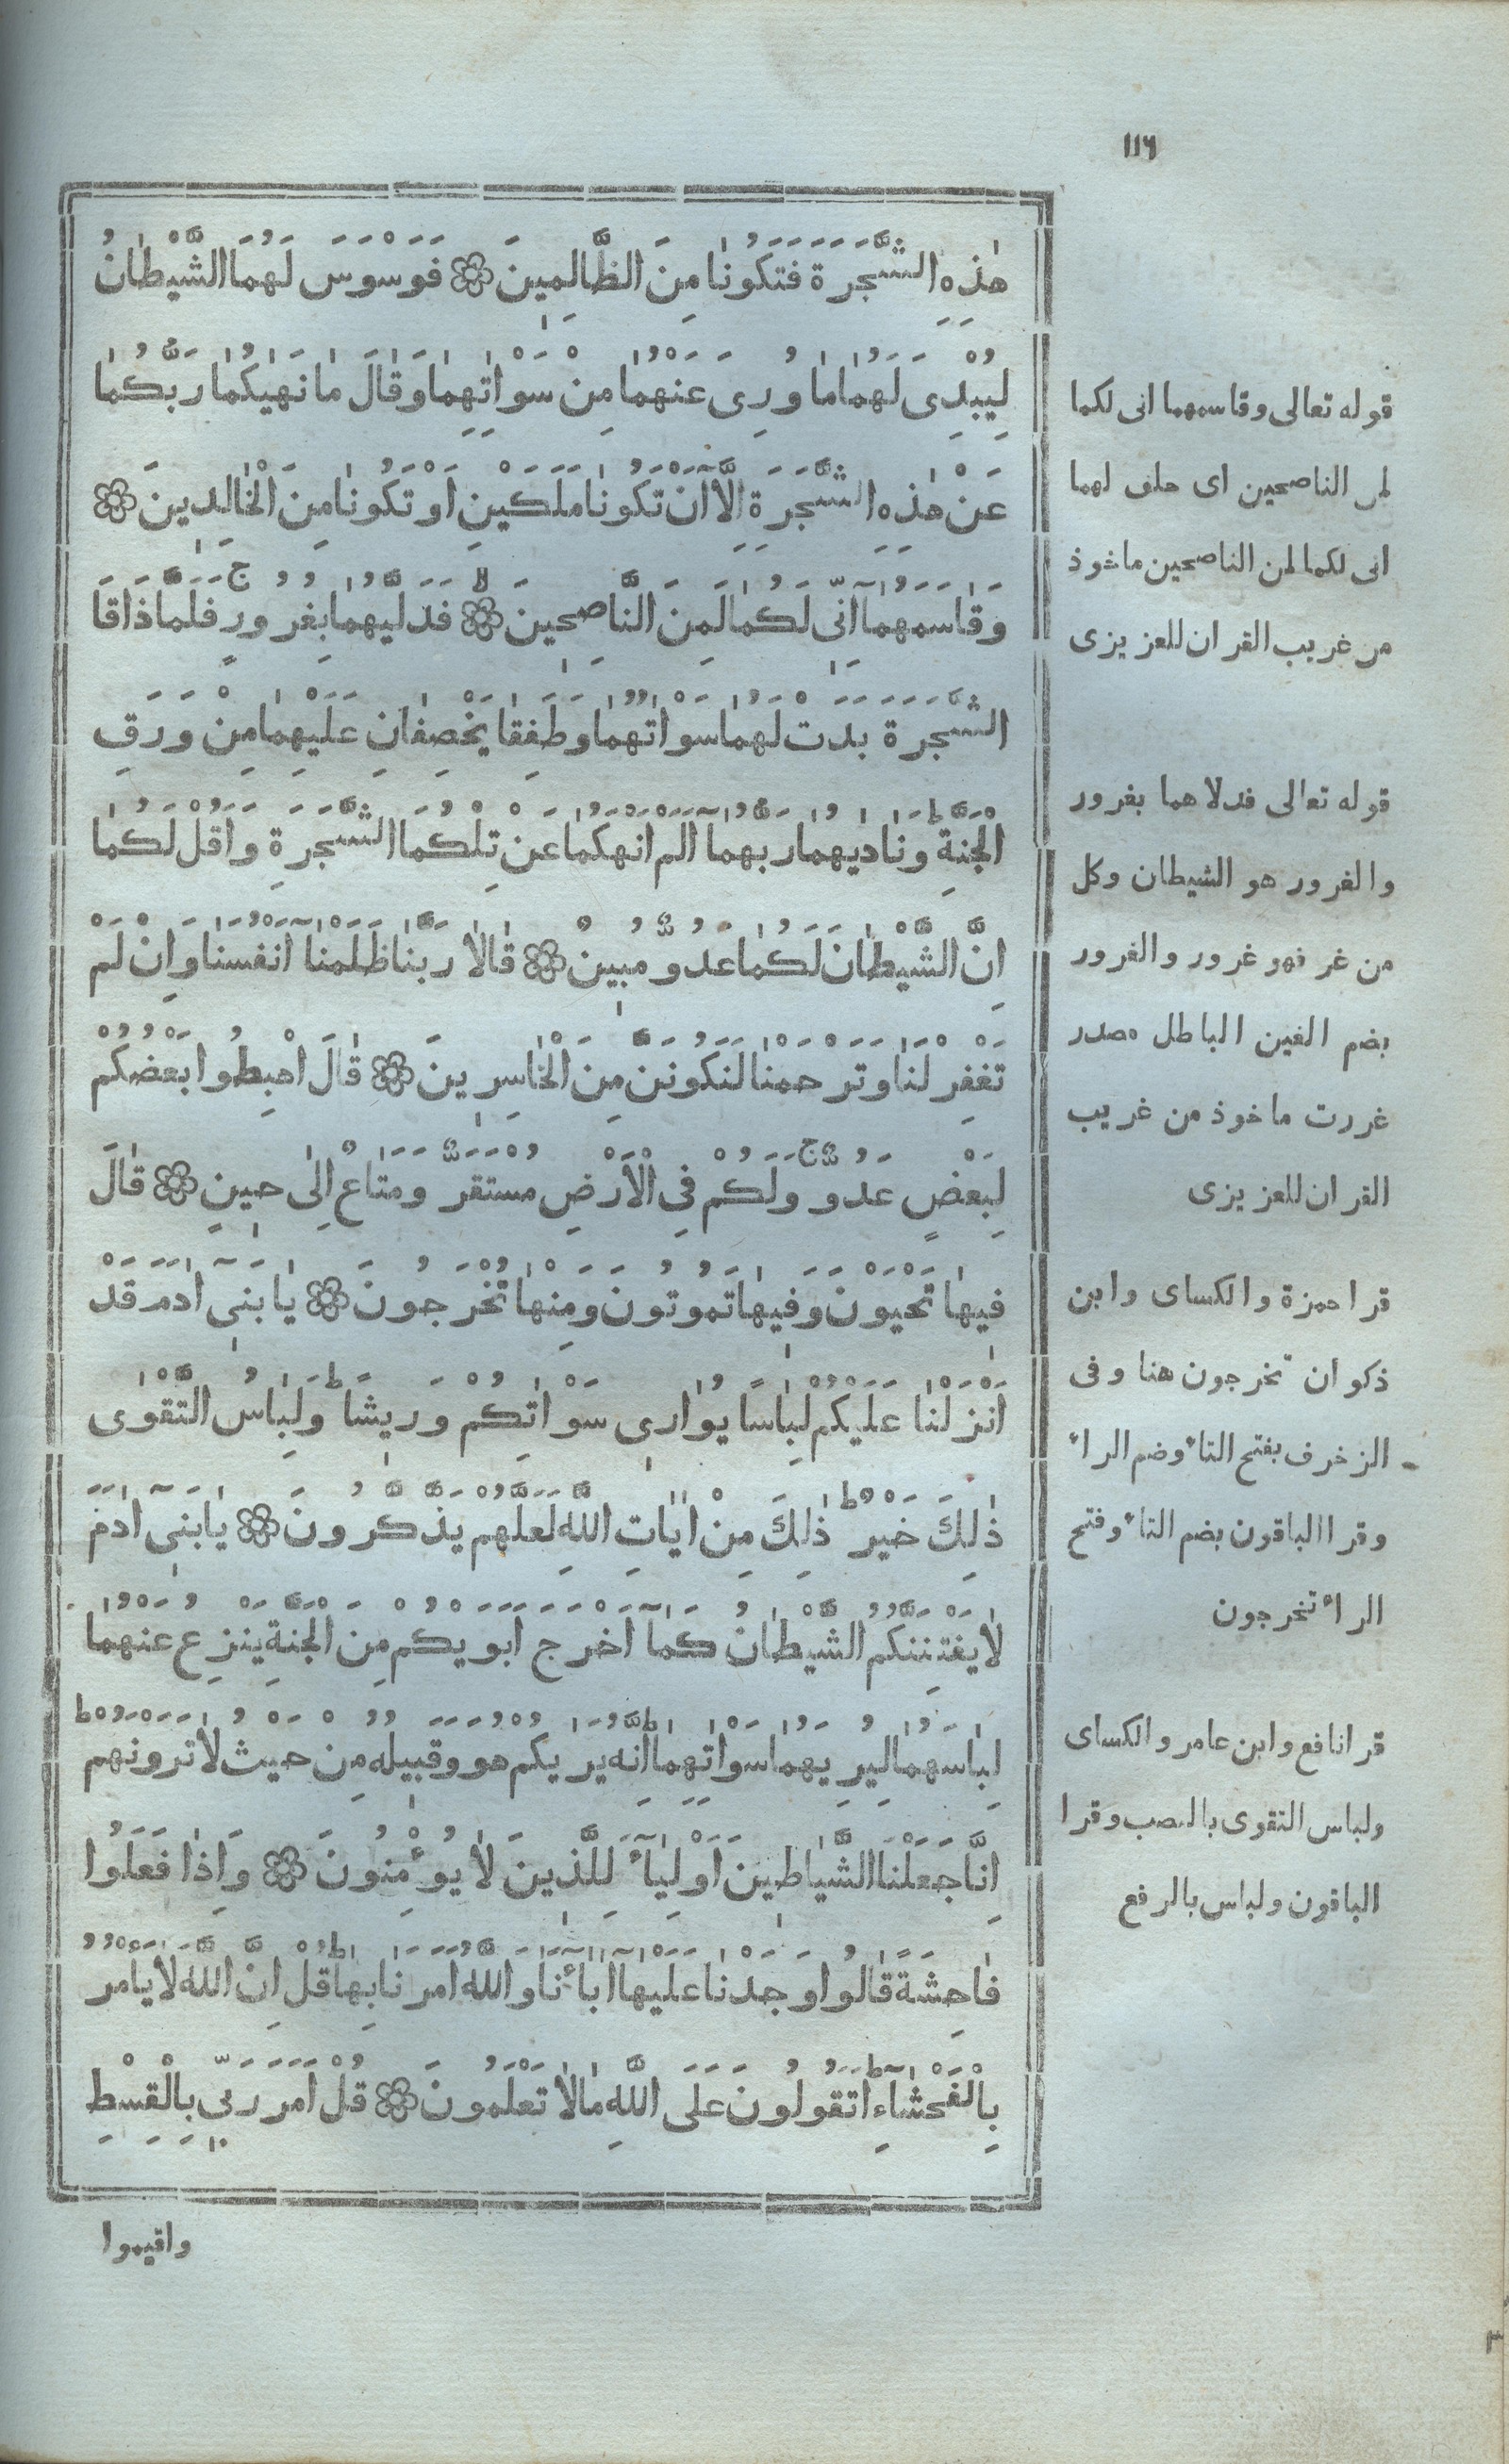 ١١٦
هٰذِهِ الشَّجَرَةَ فَتَكُونٰا مِنَ الظَّالِمِينَ ۞ فَوَسْوَسَ لَهُمَا الشَّيْطٰانُ
لِيُبْدِىَ لَهُمٰا مٰا وُرِىَ عَنْهُمٰا مِنْ سَوْاٰتِهِمٰا وَقٰالَ مٰا نَهٰيكُمٰا رَبُّكُمٰا
عَنْ هٰذِهِ الشَّجَرَةِ اِلَّآ اَنْ تَكُونٰا مَلَكَيْنِ اَوْ تَكُونٰا مِنَ الْخٰالِدِينَ ۞
وَقٰاسَمَهُمٰآ اِنِّى لَكُمٰا لَمِنَ النَّاصِحِينَ ۞ لا فَدَلّٰيهُمٰا بِغُرُورٍ ج فَلَمَّا ذٰاقَا
الشَّجَرَةَ بَدَتْ لَهُمٰا سَوْاٰتُهُمٰا وَطَفِقٰا يَخْصِفٰانِ عَلَيْهِمٰا مِنْ وَرَقِ
الْجَنَّةِ ط وَنٰادٰيهُمٰا رَبُّهُمٰآ اَلَمْ اَنْهَكُمٰا عَنْ تِلْكُمَا الشَّجَرَةِ وَاَقُلْ لَكُمٰا
اِنَّ الشَّيْطٰانَ لَكُمٰا عَدُوٌّ مُبِينٌ ۞ قٰالاٰ رَبَّنٰا ظَلَمْنٰآ اَنْفُسَنٰا وَاِنْ لَمْ
تَغْفِرْ لَنٰا وَتَرْحَمْنٰا لَنَكُونَنَّ مِنَ الْخٰاسِرِينَ ۞ قٰالَ اهْبِطُوا بَعْضُكُمْ
لِبَعْضٍ عَدُوٌّ ج وَلَكُمْ فِى الْاَرْضِ مُسْتَقَرٌّ وَمَتٰاعٌ اِلٰى حِينٍ ۞ قٰالَ
فِيهٰا تَحْيَوْنَ وَفِيهٰا تَمُوتُونَ وَمِنْهٰا تُخْرَجُونَ ۞ يٰا بَنِىٓ اٰدَمَ قَدْ
اَنْزَلْنٰا عَلَيْكُمْ لِبٰاسًا يُوٰارِى سَوْاٰتِكُمْ وَرِيشًا ط وَلِبٰاسُ التَّقْوٰى
ذٰلِكَ خَيْرٌ ط ذٰلِكَ مِنْ اٰيٰاتِ اللَّهِ لَعَلَّهُمْ يَذَّكَّرُونَ ۞ يٰا بَنِىٓ اٰدَمَ
لٰا يَفْتِنَنَّكُمُ الشَّيْطٰانُ كَمٰآ اَخْرَجَ اَبَوَيْكُمْ مِنَ الْجَنَّةِ يَنْزِعُ عَنْهُمٰا
لِبٰاسَهُمٰا لِيُرِيَهُمٰا سَوْاٰتِهِمٰا ط اِنَّهُ يَرٰيكُمْ هُوَ وَقَبِيلُهُ مِنْ حَيْثُ لٰا تَرَوْنَهُمْ ط
اِنَّا جَعَلْنَا الشَّيٰاطِينَ اَوْلِيٰآءَ لِلَّذِينَ لٰا يُوءْمِنُونَ ۞ وَاِذٰا فَعَلُوا
فٰاحِشَةً قٰالُوا وَجَدْنٰا عَلَيْهٰآ اٰبٰآءَنٰا وَاللَّهُ اَمَرَنٰا بِهٰا ط قُلْ اِنَّ اللَّهَ لٰا يَأْمُرُ
بِالْفَحْشٰآءِ ط اَتَقُولُونَ عَلَى اللَّهِ مٰا لٰا تَعْلَمُونَ ۞ قُلْ اَمَرَ رَبِّى بِالْقِسْطِ
واقيموا
قوله تعالى وقاسمهما انى لكما
لمن الناصحين اى حلف لهما
انى لكما لمن الناصحين ماخوذ
من غريب القران للعزيزى
قوله تعالى فدلاهما بغرور
والغرور هو الشيطان وكل
من غر فهو غرور والغرور
بضم الغين الباطل مصدر
غررت ماخوذ من غريب
القران للعزيزى
قرا حمزة والكساى وابن
ذكوان تخرجون هنا وفى
الزخرف بفتح التاء وضم الراء
وقرا الباقون بضم التاء وفتح
الراء تخرجون
قرا نافع وابن عامر والكساى
ولباس التقوى بالنصب وقرا
الباقون ولباس بالرفع